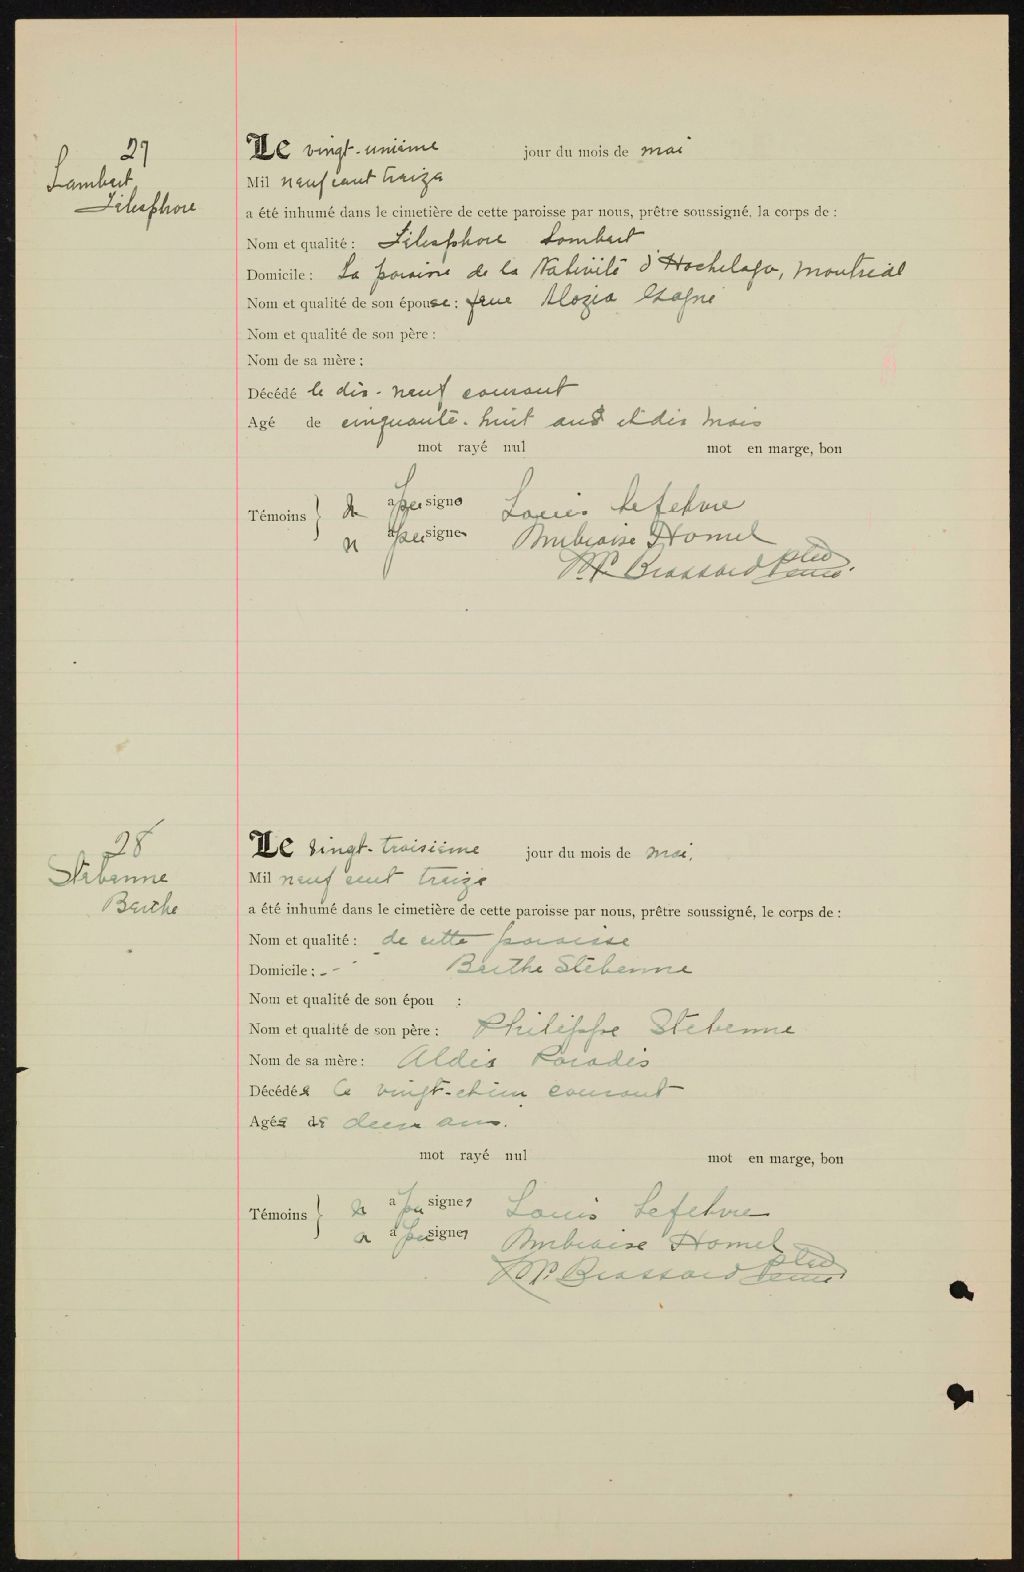 27
Lambert
Télesphore
Le vingt-unième jour du mois de mai
Mil neuf cent treize
a été inhumé dans le cimetière de cette paroisse par nous, prêtre soussigné, la corps de :
Nom et qualité : Télesphore Lambert
Domicile : La paroisse de la Nativité d'Hochelaga, Montréal
Nom et qualité de son épouse : feue
Nom et qualité de son père :
Nom de sa mère :
Décédé le dix-neuf courant
Agé de cinquante-huit ans et dix mois
mot rayé nul mot en marge, bon
Témoins } a signé Louis Lefebvre
a signé Ambroise Hamel
Brassard ptre
28
Stebenne
Berthe
Le vingt-troisième jour du mois de mai,
Mil neuf cent treize
a été inhumé dans le cimetière de cette paroisse par nous, prêtre soussigné, le corps de :
Nom et qualité : de cette paroisse
Domicile : Berthe Stebenne
Nom et qualité de son épou :
Nom et qualité de son père : Philippe Stebenne
Nom de sa mère : Aldéa Paradis
Décédée le vingt-et-un courant
Agée de deux ans.
mot rayé nul mot en marge, bon
Témoins } a signer Louis Lefebvre
a signer Ambroise Hamel
Brassard ptre